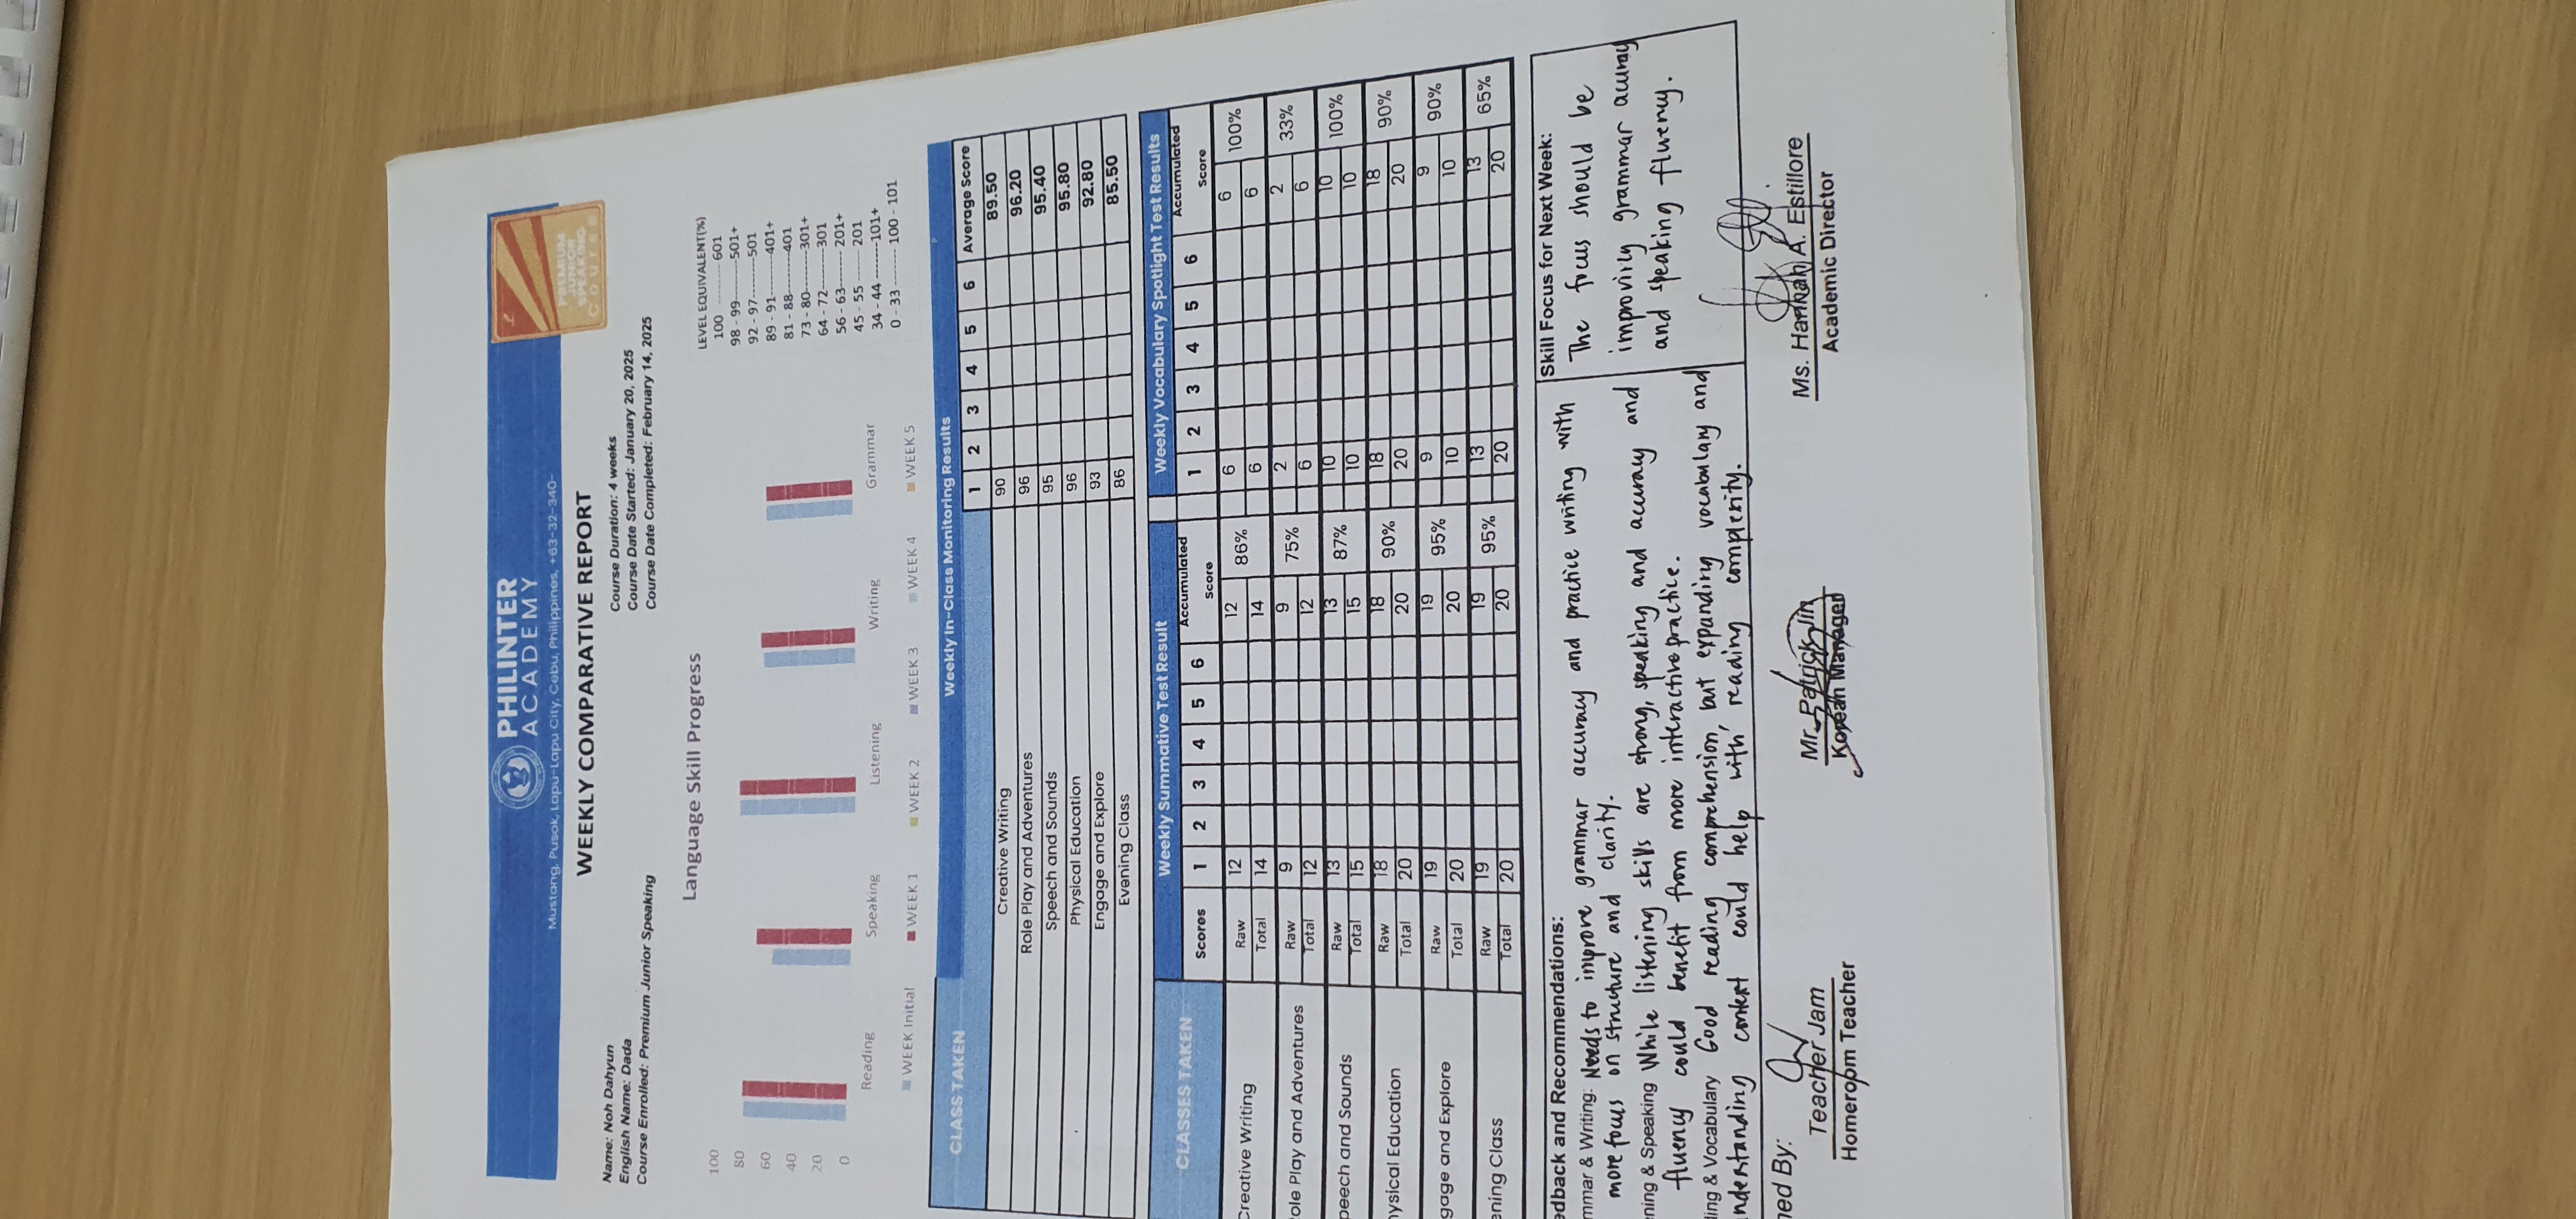 PHILINTER
ACADEMY
Mustang, Pusok, Lapu-Lapu City, Cebu, Philippines, +63-32-340-
PREMIUM
JUNIOR
SPEAKING
Course
WEEKLY COMPARATIVE REPORT
Name: Noh Dahyun
English Name: Dada
Course Enrolled: Premium Junior Speaking
Course Duration: 4 weeks
Course Date Started: January 20, 2025
Course Date Completed: February 14, 2025
Language Skill Progress
100
80
60
40
20
0
Reading Speaking Listening Writing Grammar
WEEK Initial WEEK 1 WEEK 2 WEEK 3 WEEK 4 WEEK 5
LEVEL EQUIVALENT(%)
100 ---------- 601
98 - 99--------501+
92 - 97---------501
89 - 91---------401+
81 - 88---------401
73 - 80--------301+
64 - 72--------301
56 - 63------- 201+
45 - 55 ------- 201
34 - 44 --------101+
0 - 33 --------- 100 - 101
CLASS TAKEN Weekly In-Class Monitoring Results
1 2 3 4 5 6 Average Score
Creative Writing 90 89.50
Role Play and Adventures 96 96.20
Speech and Sounds 95 95.40
Physical Education 96 95.80
Engage and Explore 93 92.80
Evening Class 86 85.50
CLASSES TAKEN Weekly Summative Test Result Weekly Vocabulary Spotlight Test Results
Scores 1 2 3 4 5 6 Accumulated score 1 2 3 4 5 6 Accumulated Score
Creative Writing Raw 12 12 86% 6 6 100%
Total 14 14 6 6
ole Play and Adventures Raw 9 9 75% 2 2 33%
Total 12 12 6 6
peech and Sounds Raw 13 13 87% 10 10 100%
Total 15 15 10 10
hysical Education Raw 18 18 90% 18 18 90%
Total 20 20 20 20
gage and Explore Raw 19 19 95% 9 9 90%
Total 20 20 10 10
ening Class Raw 19 19 95% 13 13 65%
Total 20 20 20 20
edback and Recommendations:
mmar & Writing: Needs to improve grammar accuracy and practice writing with
more focus on structure and clarity.
ening & Speaking While listening skills are strong, speaking and accuracy and
fluency could benefit from more interactive practice.
ding & Vocabulary Good reading comprehension, but expanding vocabulary and
understanding context could help with reading complexity.
Skill Focus for Next Week:
The focus should be
improving grammar accuray
and speaking fluency.
ned By:
Teacher Jam
Homeroom Teacher
Mr. Patrick Jin
Korean Manager
Ms. Hannah A. Estillore
Academic Director